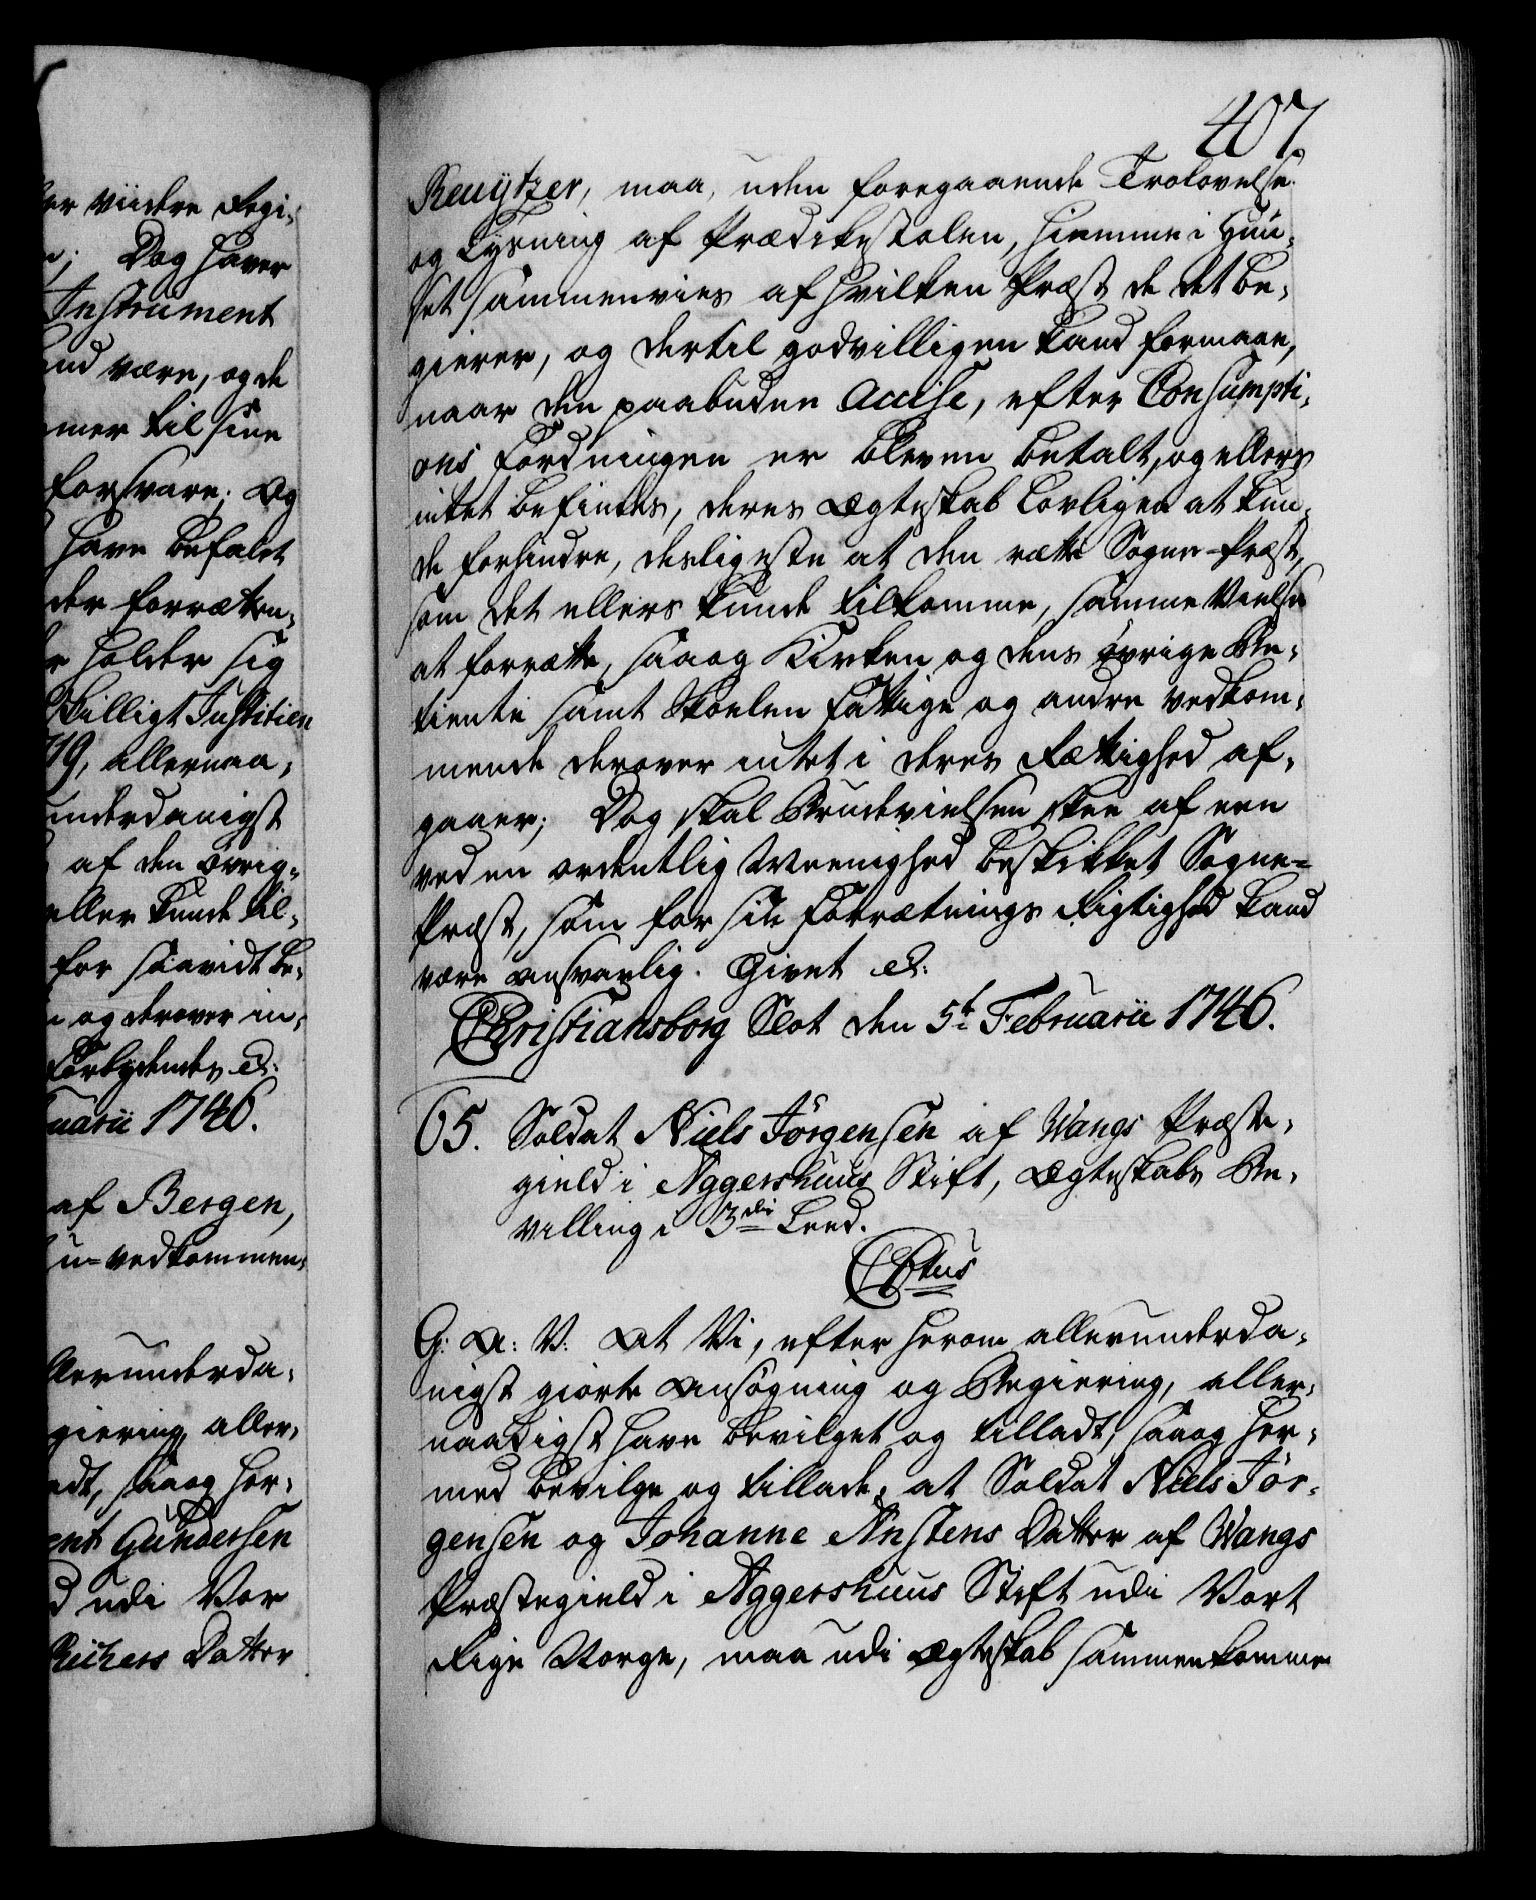 er viidere Regi-
Dog haver
Instrument
and være, og de
mer til sine
forsvare; Og
have befalet
der forretten-
holder sig
billigt Justitien
49, allernaa-
underdanigst
af den övrig-
eller kunde til-
for saavidt be-
og derover in-
Forbydendes &:
uarii 1746.
af Bergen,
u-vedkommen-
llerunderda-
giering, aller-
adt, saaog her-
Gundersen
udi Vor
Datter
407.
Reuÿtzer, maa, uden foregaaende Trolovelse
og Lysning af Prædikestolen, hiemme i Huu-
set sammenvies af hvilken Præst de det be-
gierer, og dertil godvilligen kand formaae,
naar den paabudne Accise, efter Consumpti-
ons Fordningen er bleven betalt, og ellers
intet befindes, deres Ægteskab lovligen at kun-
de forhindre, desligeste at den rette Sogne-Præst,
som det ellers kunde tilkomme, samme Vielse
at forrette, saaog Kirken og dens övrige Be-
tiente samt Skoelen Fattige og andre vedkom-
mende derover intet i deres Rettighed af-
gaaer; Dog skal Brudevielsen skee af een
ved en ordentlig Meenighed beskikket Sogne-
Præst, som for sin Forretnings Rigtighed kand
være ansvarlig. Givet &:
Christiansborg Slot den 5t Februarii 1746.
65. Soldat Niels Jörgensen af Wangs Præste-
gield i Aggershuus Stift, Ægteskabs Be-
villing i 3die Leed.
CSxtus
G: A: V: At Vi, efter herom allerunderda-
nigst giorte Ansögning og Begiering, aller-
naadigst have bevilget og tilladt, saaog her-
med bevilge og tillade, at Soldat Niels Jör-
gensen og Johanne Anstens Datter af Wangs
Præstegield i Aggershuus Stift udi Vort
Rige Norge, maa udi Ægteskab sammenkomme